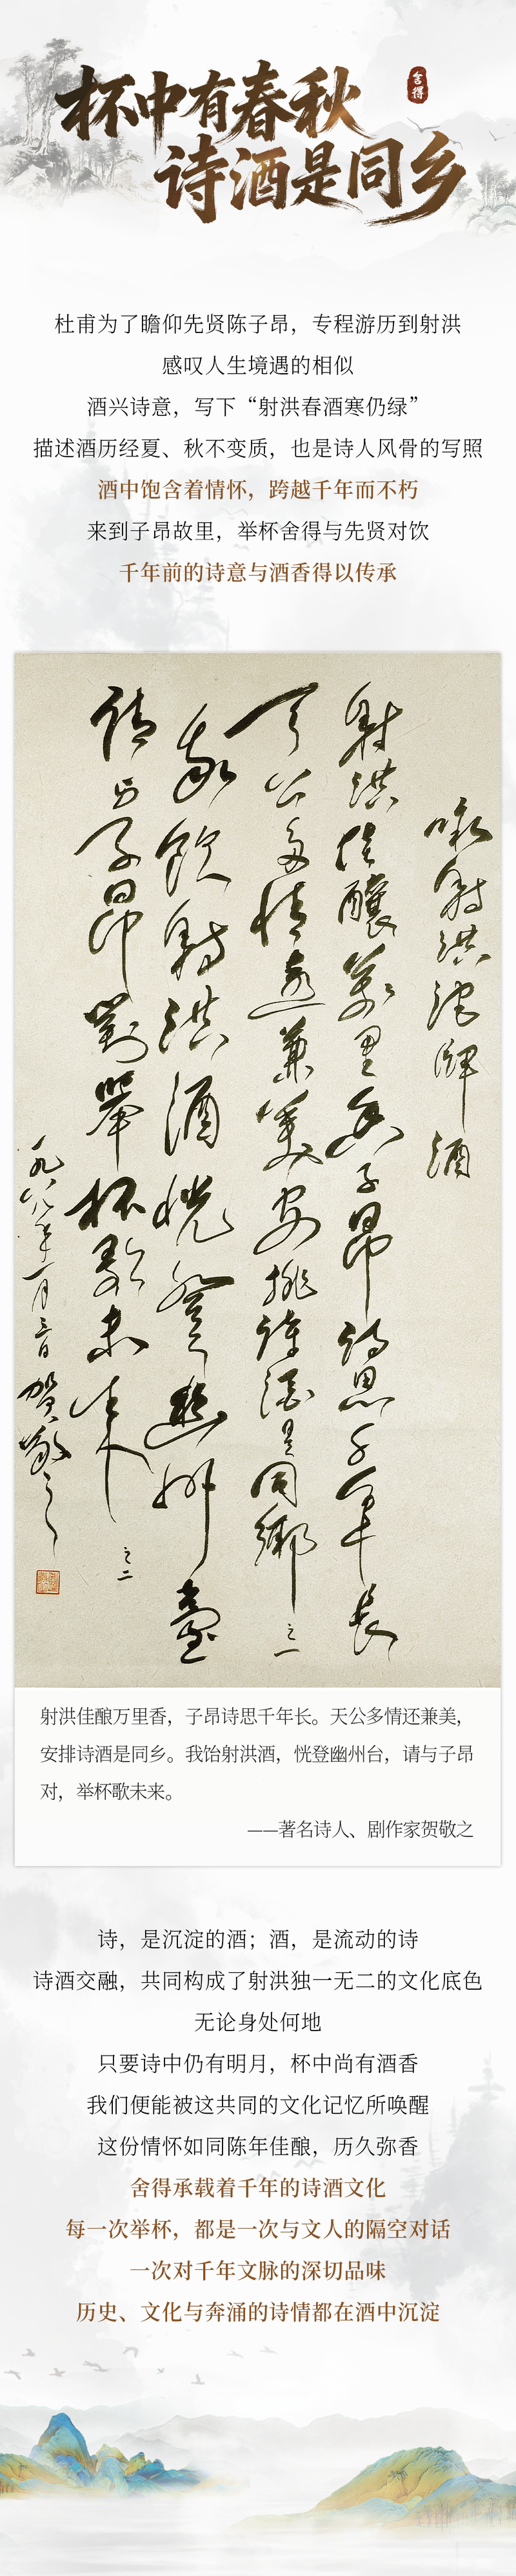 杯中有春秋
舍得
诗酒是同乡
杜甫为了瞻仰先贤陈子昂，专程游历到射洪
感叹人生境遇的相似
酒兴诗意，写下“射洪春酒寒仍绿”
描述酒历经夏、秋不变质，也是诗人风骨的写照
酒中饱含着情怀，跨越千年而不朽
来到子昂故里，举杯舍得与先贤对饮
千年前的诗意与酒香得以传承
咏射洪沱牌酒
射洪佳釀萬里香子昂诗思千年長
天公多情還兼美安排诗酒是同鄉 之一
我飲射洪酒恍登幽州臺
请与子昂對舉杯歌未来 之二
一九八八年一月 賀敬之
射洪佳酿万里香，子昂诗思千年长。天公多情还兼美，
安排诗酒是同乡。我饴射洪酒，恍登幽州台，请与子昂
对，举杯歌未来。
——著名诗人、剧作家贺敬之
诗，是沉淀的酒；酒，是流动的诗
诗酒交融，共同构成了射洪独一无二的文化底色
无论身处何地
只要诗中仍有明月，杯中尚有酒香
我们便能被这共同的文化记忆所唤醒
这份情怀如同陈年佳酿，历久弥香
舍得承载着千年的诗酒文化
每一次举杯，都是一次与文人的隔空对话
一次对千年文脉的深切品味
历史、文化与奔涌的诗情都在酒中沉淀